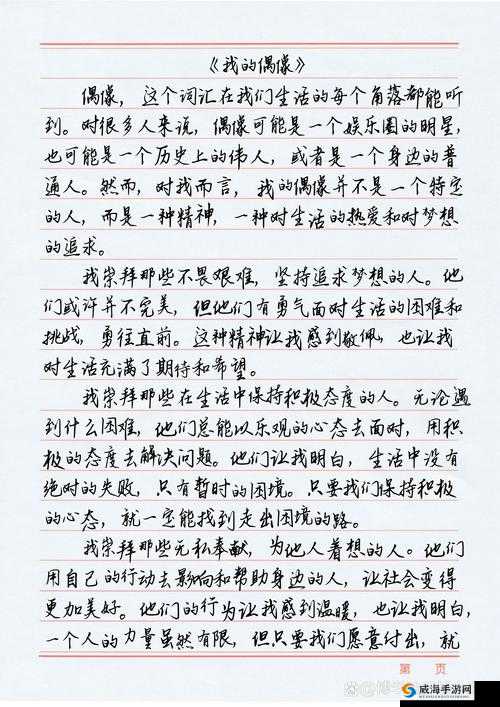 《我的偶像》
偶像，这个词汇在我们生活的每个角落都能听
到。对很多人来说，偶像可能是一个娱乐圈的明星，
也可能是一个历史上的伟人，或者是一个身边的普
通人。然而，对我而言，我的偶像并不是一个特定
的人，而是一种精神，一种对生活的热爱和对梦想
的追求。
我崇拜那些不畏艰难，坚持追求梦想的人。他
们或许并不完美，但他们有勇气面对生活的困难和
挑战，勇往直前。这种精神让我感到敬佩，也让我
对生活充满了期待和希望。
我崇拜那些在生活中保持积极态度的人。无论遇
到什么困难，他们总能以乐观的心态去面对，用积
极的态度去解决问题。他们让我明白，生活中没有
绝对的失败，只有暂时的困境。只要我们保持积极
的心态，就一定能找到走出困境的路。
我崇拜那些无私奉献，为他人着想的人。他们
用自己的行动去影响和帮助身边的人，让社会变得
更加美好。他们的行为让我感到温暖，也让我明白，
一个人的力量虽然有限，但只要我们愿意付出，就
第 页
威海手游网